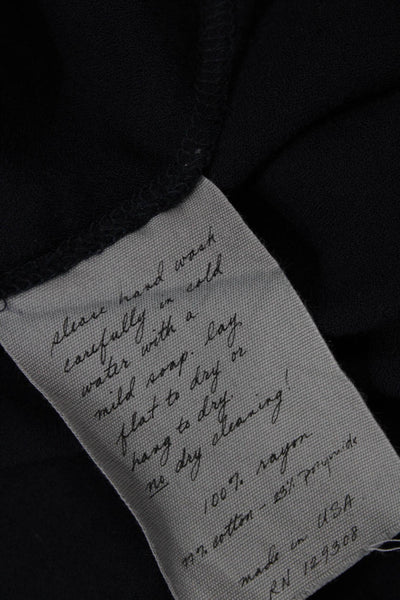 please hand wash
carefully in cold
water with a
mild soap. lay
flat to dry or
hang to dry.
no dry cleaning!
100% rayon
77% cotton - 23% polyamide
made in USA
RN 129308